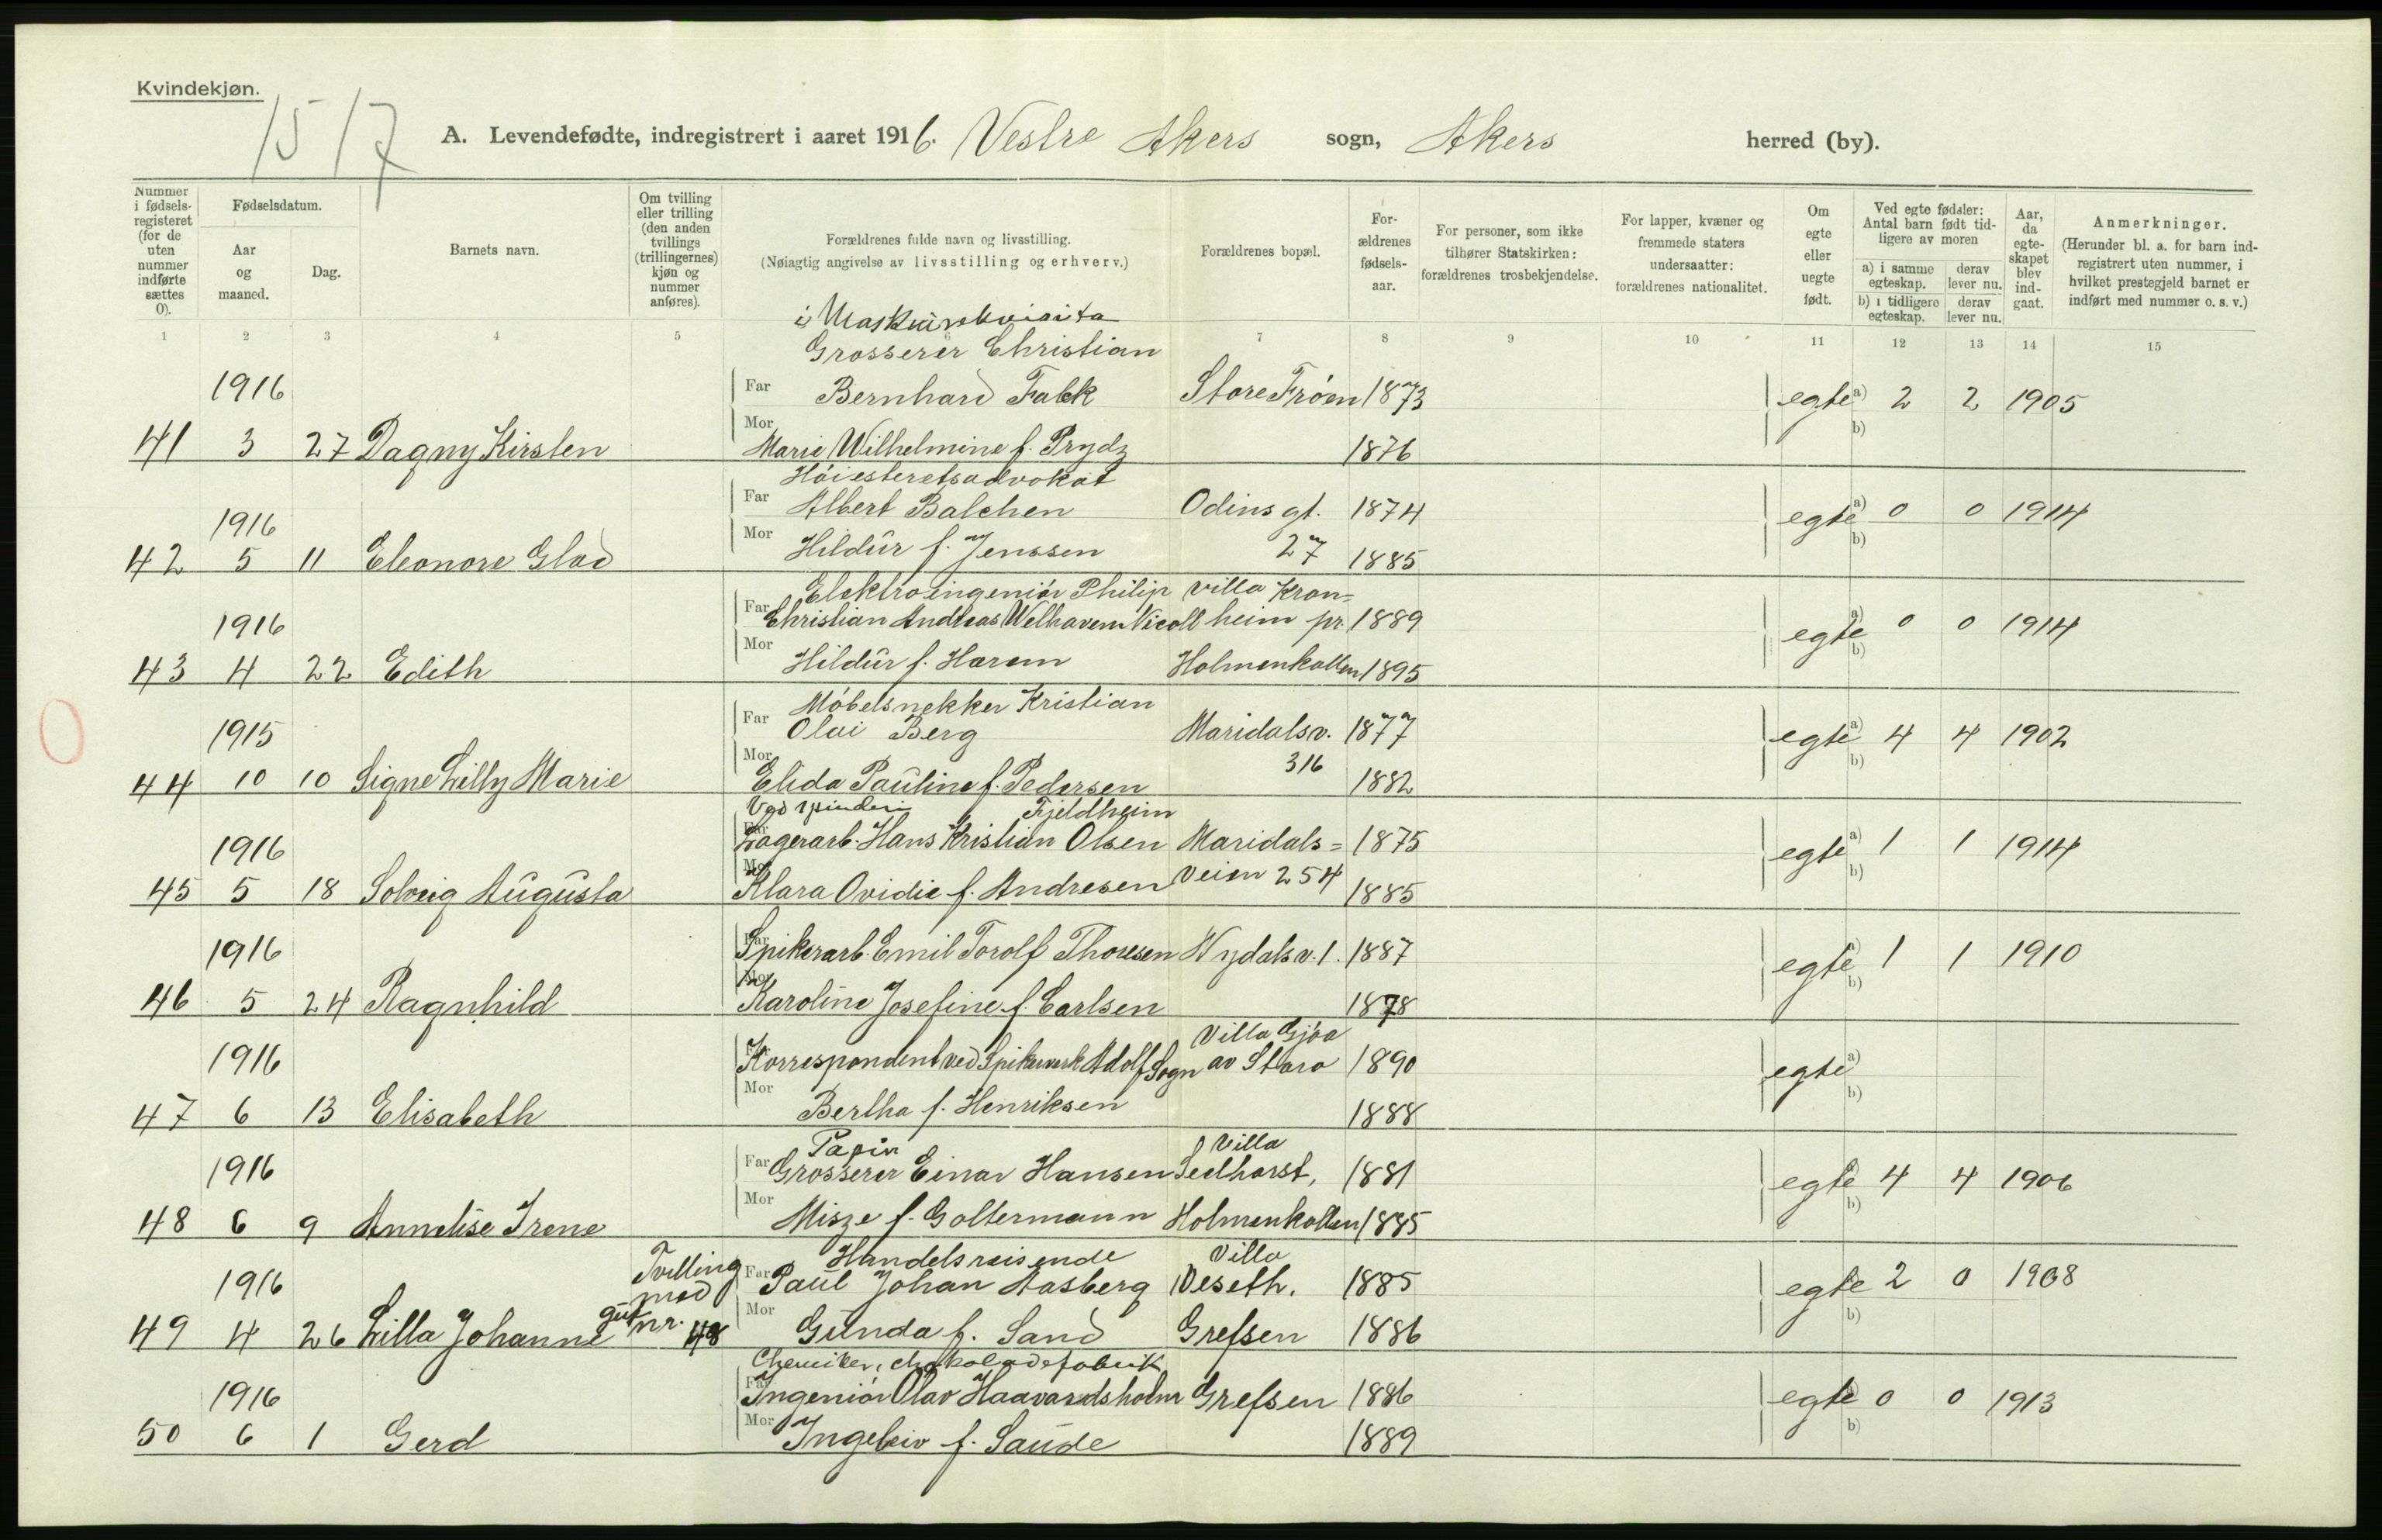 Kvindekjøn.
1517
A. Levendefødte, indregistrert i aaret 1916. Vestre Akers sogn, Akers herred (by).
Nummer i fødselsregisteret (for de uten nummer indførte sættes 0).
Fødselsdatum.
Aar og maaned.
Dag.
Barnets navn.
Om tvilling eller trilling (den anden tvillings (trillingernes) kjøn og nummer anføres).
Forældrenes fulde navn og livsstilling.
(Nøiagtig angivelse av livsstilling og erhverv.)
Forældrenes bopæl.
Forældrenes fødselsaar.
For personer, som ikke tilhører Statskirken: forældrenes trosbekjendelse.
For lapper, kvæner og fremmede staters undersaatter: forældrenes nationalitet.
Om egte eller uegte født.
Ved egte fødsler: Antal barn født tidligere av moren
a) i samme egteskap. derav lever nu.
b) i tidligere egteskap. derav lever nu.
Aar, da egteskapet blev indgaat.
Anmerkninger.
(Herunder bl. a. for barn indregistrert uten nummer, i hvilket prestegjeld barnet er indført med nummer o. s. v.)
1 2 3 4 5 7 8 9 10 11 12 13 14 15
i Maskinrekvisita
Grosserer Christian
1916 Far Bernhard Falck Store Frøen 1873 egte a) 2 2 1905
Mor b)
41 3 27 Dagny Kirsten Marie Wilhelmine f. Prydz 1876
Høiesteretsadvokat
Far Albert Balchen Odins gt. 1874 egte a) 0 0 1914
1916 Mor b)
42 5 11 Eleonore Glad Hildur f. Jenssen 27 1885
Elektroingeniør Philip Villa Kron=
1916 Far Christian Andreas Welhaven Nicoll heim pr. 1889 egte a) 0 0 1914
Mor b)
43 4 22 Edith Hildur f. Harem Holmenkollen 1895
Møbelsnekker Kristian
1915 Far Olai Berg Maridalsv. 1877 egte a) 4 4 1902
Mor 316 b)
44 10 10 Signe Lilly Marie Elida Pauline f. Pedersen 1882
Ved spinderi Fjeldheim
1916 Far Lagerarb. Hans Kristian Olsen Maridals= 1875 egte a) 1 1 1914
Mor b)
45 5 18 Solveig Augusta Klara Ovidie f. Andresen Veien 254 1885
1916 Far Spikerarb. Emil Torolf Thoresen Nydalsv. 1. 1887 egte 1 1 1910
Mor b)
46 5 24 Ragnhild Karoline Josefine f. Carlsen 1878
Villa Gjøa
1916 Korrespondent ved Spikerverk Adolf Sogn av Staro 1890 egte a)
Mor b)
47 6 13 Elisabeth Bertha f. Henriksen 1888
Papir Villa
1916 Far Grosserer Einar Hansen Seelhorst, 1881 egte 4 4 1906
Mor b)
48 6 9 Annelise Irene Misze f. Goltermann Holmenkollen 1885
Tvilling Handelsreisende Villa
1916 med Far Paul Johan Aasberg Veseth. 1885 egte 2 0 1908
gut nr. 48 Mor b)
49 4 26 Lilla Johanne Gunda f. Sand Grefsen 1886
Chemiker, chokoladefabrik
1916 Far Ingeniør Olav Haavardsholm Grefsen 1886 egte 0 0 1913
Mor b)
50 6 1 Gerd Ingebeiv f. Saude 1889
0